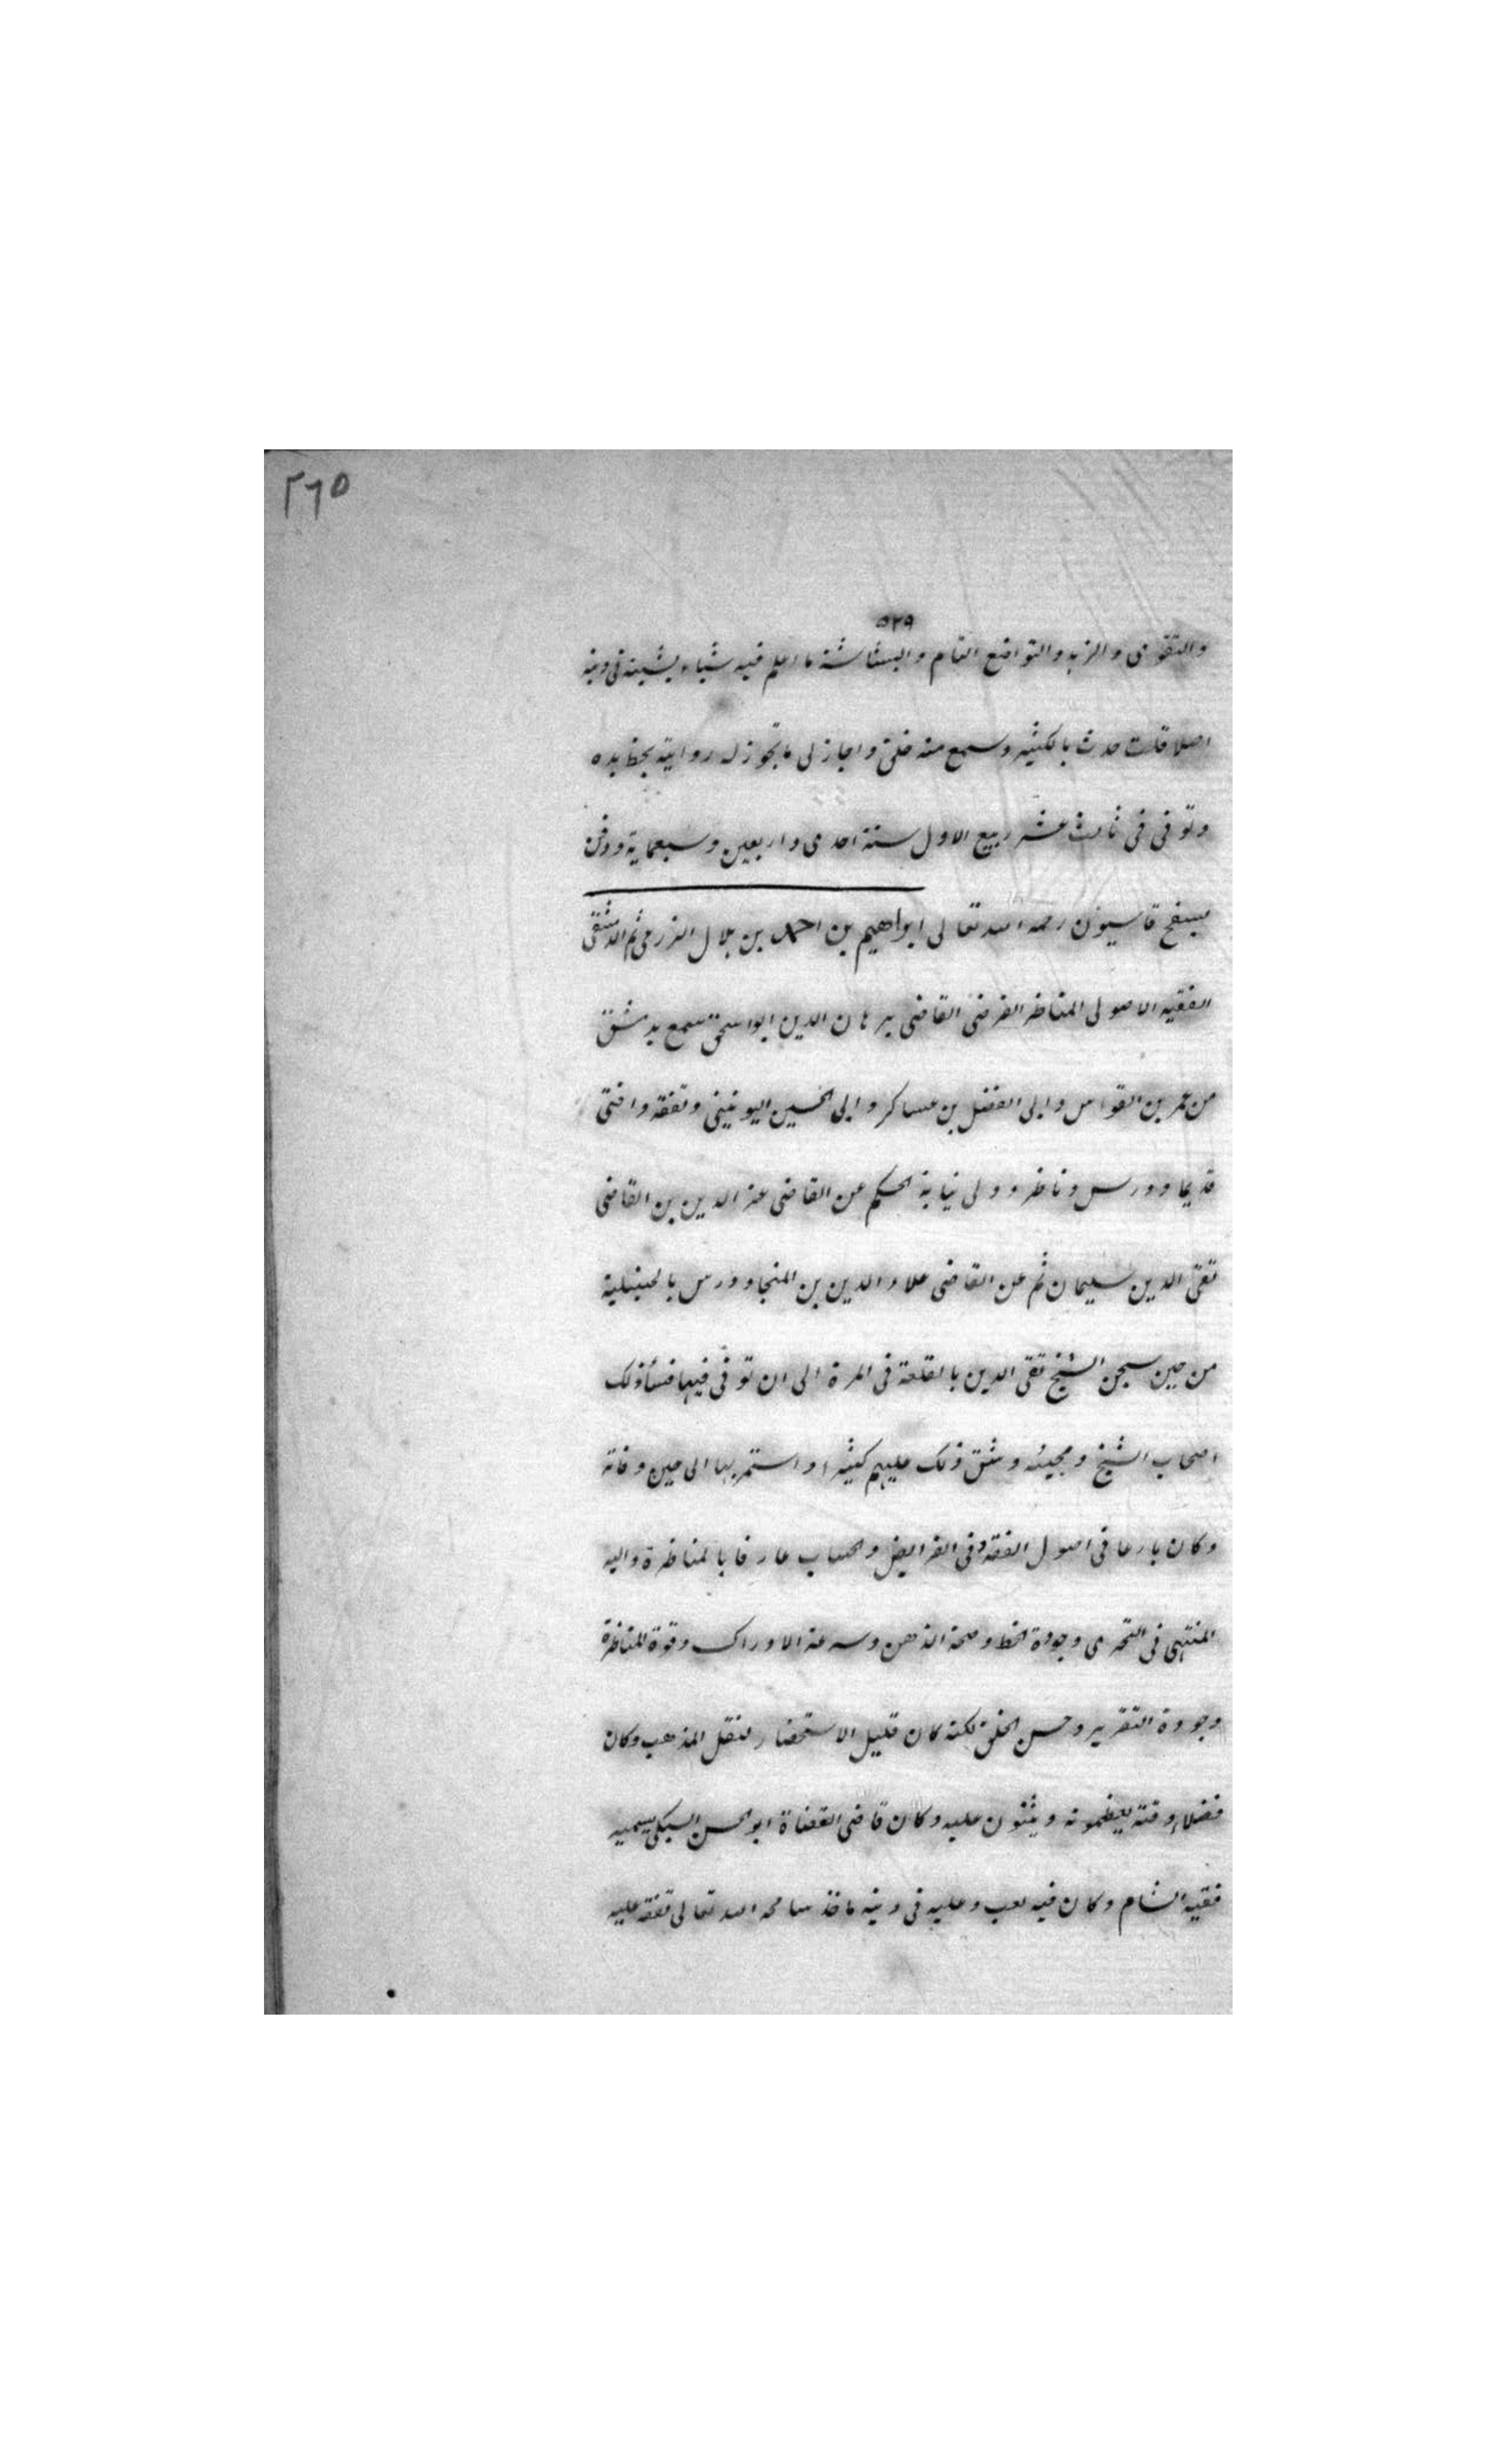 ٢٦٥
٥٢٩
والتقوى والزهد والتواضع التام والبشاشة ما اعلم فيه شياء يشينه فى دينه
اصلا قلت حدث بالكثير وسمع منه خلق واجاز لى ما تجوز له روايته بخط يده
وتوفى فى ثالث عشر ربيع الاول سنة احدى واربعين وسبعماية ودفن
بسفح قاسيون رحمه الله تعالى ابراهيم بن احمد بن هلال الزرعى ثم الدمشقى
الفقيه الاصولى المناظر الفرضى القاضى برهان الدين ابو اسحق سمع بدمشق
من عمر بن القواس وابى الفضل بن عساكر وابى الحسين اليونينى وتفقه وافتى
قديما ودرس وناظر وولى نيابة الحكم عن القاضى عز الدين بن القاضى
تقى الدين سليمان ثم عن القاضى علاء الدين بن المنجا ودرس بالحنبلية
من حين سجن الشيخ تقى الدين بالقلعة فى المرة الى ان توفى فيها فساء ذلك
اصحاب الشيخ ومحبيه وشق ذلك عليهم كثيرا واستمر بها الى حين وفاته
وكان بارعا فى اصول الفقه وفى الفرايض والحساب عارفا بالمناظرة واليه
المنتهى فى التحرى وجودة الخط وصحة الذهن وسرعة الادراك وقوة المناظرة
وجودة التقرير وحسن الخلق لكنه كان قليل الاستحضار لنقل المذهب وكان
فضلاء وقته يعظمونه ويثنون عليه وكان قاضى القضاة ابو الحسن السبكى يسميه
فقيه الشام وكان فيه لعب وعليه فى دينه ماخذ سامحه الله تعالى تفقه عليه